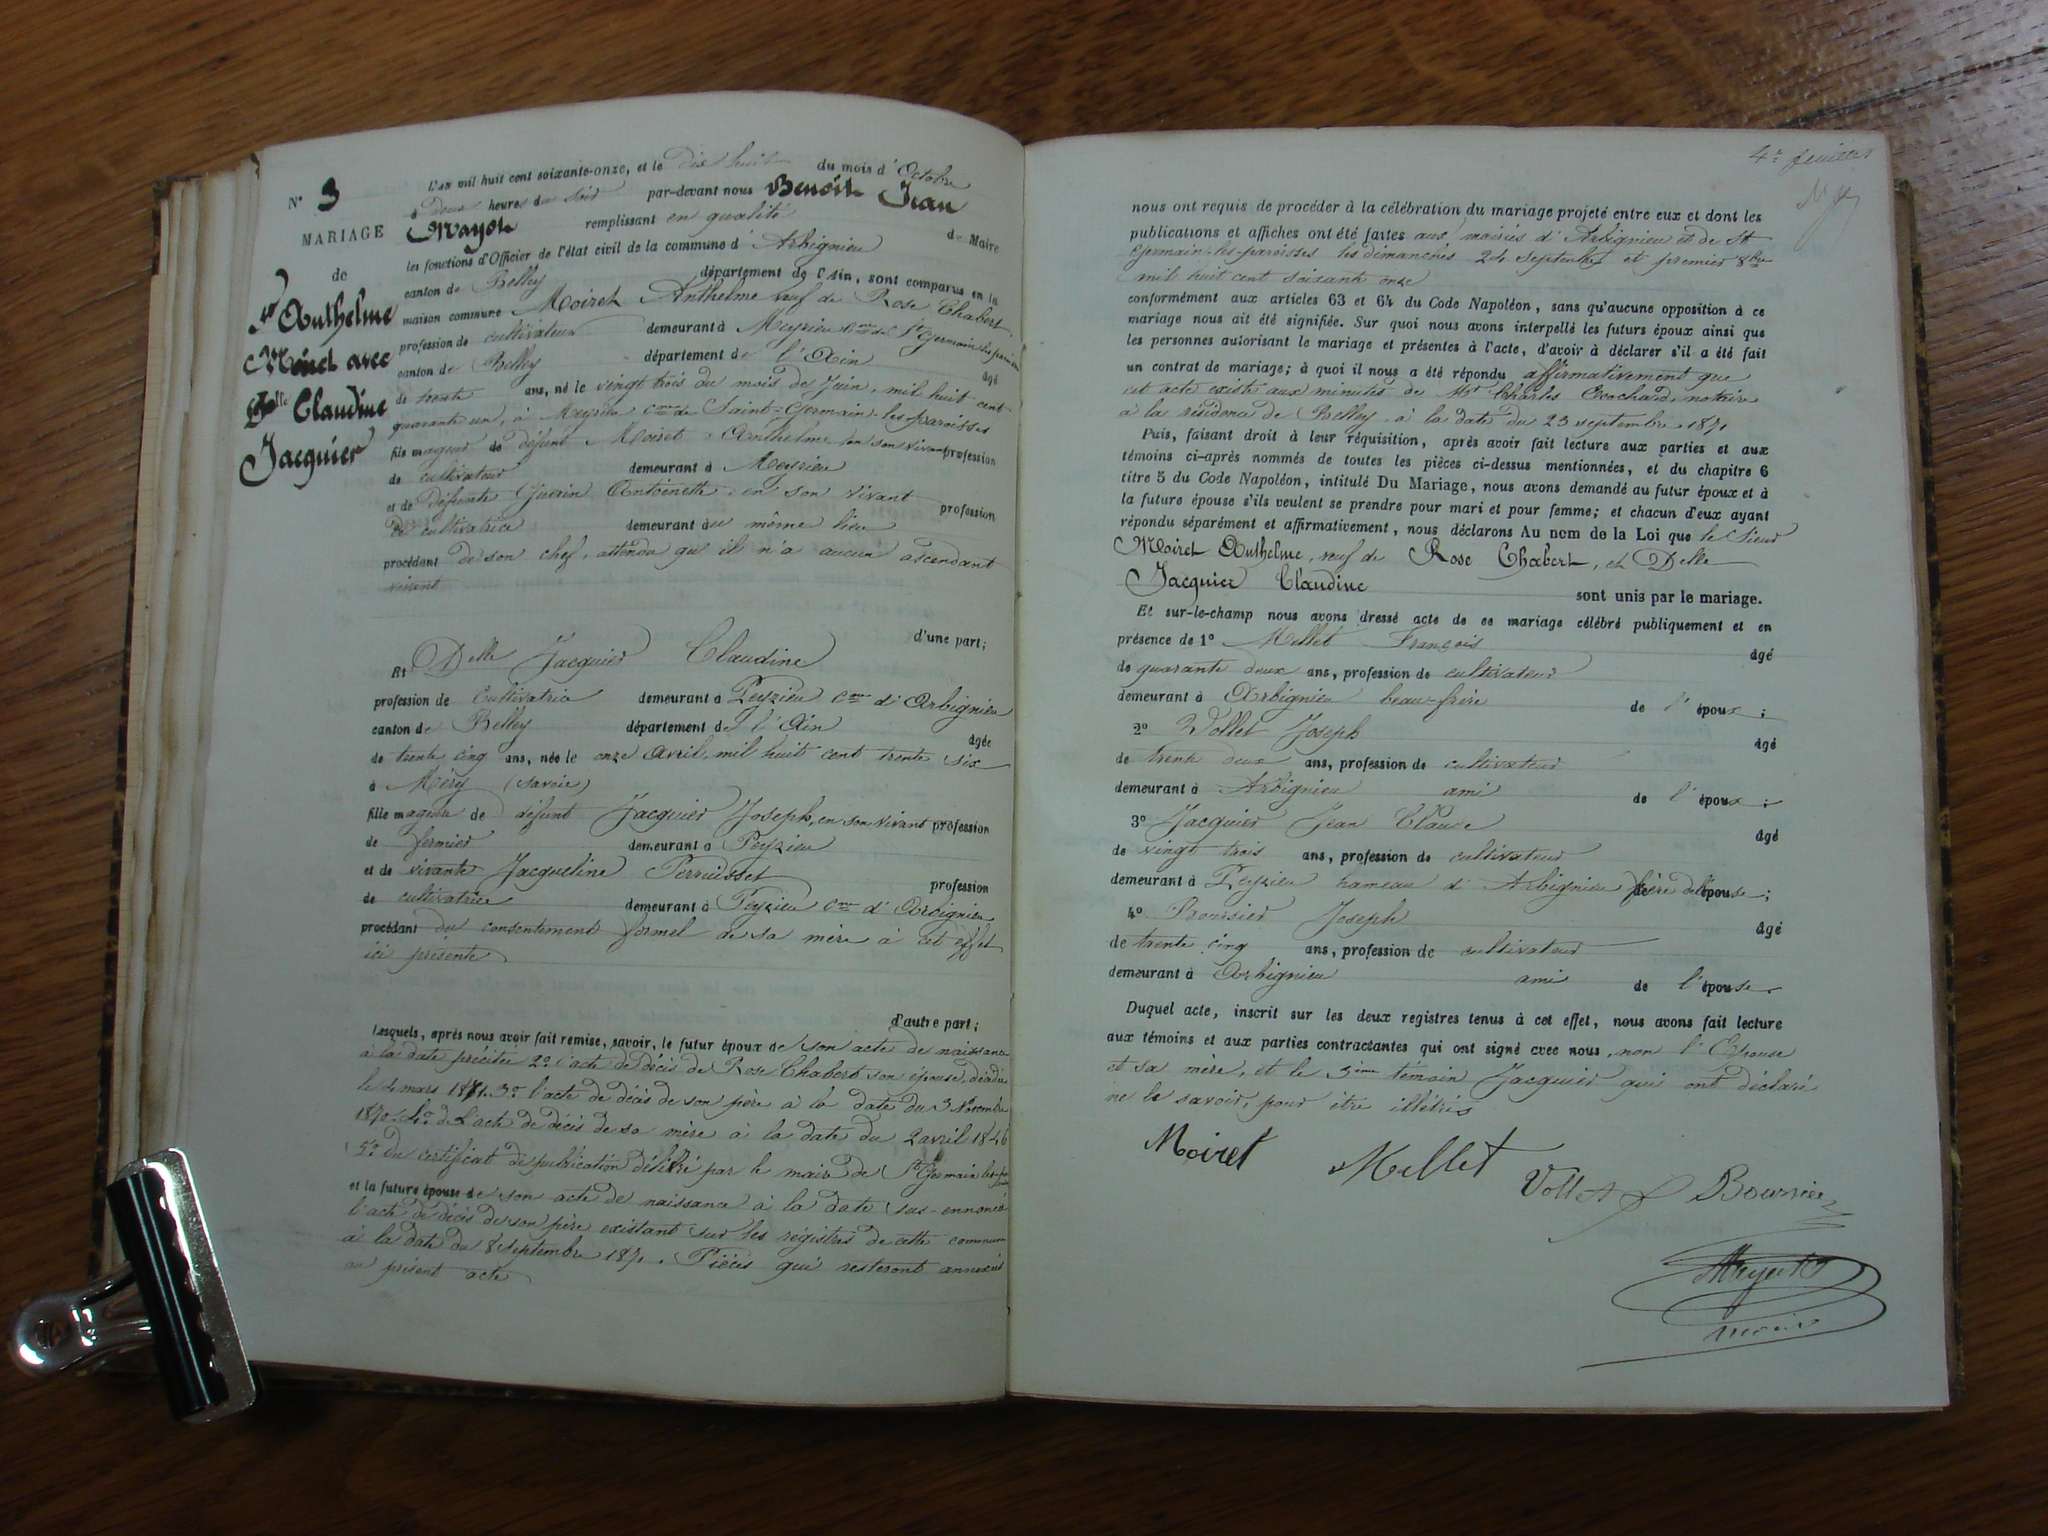 N° 3
MARIAGE
de
Sr Anthelme
Moiret avec
Delle Claudine
Jacquier
L'an mil huit cent soixante-onze, et le dix huit du mois d'Octobre
à deux heures du soir par-devant nous Benoit Jean
Mayot remplissant en qualité de Maire
les fonctions d'Officier de l'état civil de la commune d'Arbignieu
canton de Belley département de l'Ain, sont comparus en la
maison commune Moiret Anthelme veuf de Rose Chabert,
profession de cultivateur demeurant à Meyrieu Cne de St Germain les paroisses
canton de Belley département de l'Ain âgé
de trente ans, né le vingt trois du mois de Juin, mil huit cent
quarante un, à Meyrieu Cne de Saint-Germain-les-paroisses
fils mageur de défunt Moiret Anthelme en son vivant profession
de cultivateur demeurant à Meyrieu
et de Défunte Guerin Antoinette en son vivant profession
de cultivatrice demeurant au même lieu
procédant de son chef, attendu qu'il n'a aucun ascendant
vivant
d'une part;
Et Delle Jacquier Claudine
profession de Cultivatrice demeurant à Peyzieu Cne d'Arbignieu
canton de Belley département de l'Ain âgée
de trente cinq ans, née le onze Avril, mil huit cent trente six
à Méry (Savoie)
fille mageure de défunt Jacquier Joseph, en son vivant profession
de fermier demeurant à Peyzieu
et de vivante Jacqueline Perruisset profession
de cultivatrice demeurant à Peyzieu Cne d'Arbignieu
procédant du consentement formel de sa mère à cet effet
ici présente
d'autre part;
Lesquels, après nous avoir fait remise, savoir, le futur époux de son acte de naissance
à la date précitée 2° l'acte de décès de Rose Chabert son épouse, décédée
le 4 mars 1871. 3° l'acte de décès de son père à la date du 3 Novembre
1870. 4° de l'acte de décès de sa mère à la date du 2 avril 1846
5° du certificat de publication délivré par le maire de St Germain les
et la future épouse de son acte de naissance à la date sus-ennoncé
l'acte de décès de son père existant sur les régistres de cette commune
à la date du 8 septembre 1871. Pièces qui resteront annexées
au présent acte
4e feuillet
nous ont requis de procéder à la célébration du mariage projeté entre eux et dont les
publications et affiches ont été faites aux mairies d'Arbignieu et de St
Germain-les-paroisses les dimanches 24 septembre et premier 8bre
mil huit cent soixante onze
conformément aux articles 63 et 64 du Code Napoléon, sans qu'aucune opposition à ce
mariage nous ait été signifiée. Sur quoi nous avons interpellé les futurs époux ainsi que
les personnes autorisant le mariage et présentes à l'acte, d'avoir à déclarer s'il a été fait
un contrat de mariage; à quoi il nous a été répondu affirmativement que
cet acte existe aux minutes de Mt Charles Crochard, notaire
à la résidence de Belley à la date du 23 septembre 1871
Puis, faisant droit à leur réquisition, après avoir fait lecture aux parties et aux
témoins ci-après nommés de toutes les pièces ci-dessus mentionnées, et du chapitre 6
titre 5 du Code Napoléon, intitulé Du Mariage, nous avons demandé au futur époux et à
la future épouse s'ils veulent se prendre pour mari et pour femme; et chacun d'eux ayant
répondu séparément et affirmativement, nous déclarons Au nom de la Loi que le Sieur
Moiret Anthelme, veuf de Rose Chabert, et Delle
Jacquier Claudine sont unis par le mariage.
Et sur-le-champ nous avons dressé acte de ce mariage célébré publiquement et en
présence de 1° Mellet François âgé
de quarante deux ans, profession de cultivateur
demeurant à Arbignieu beau-frère de l'époux;
2° Vollet Joseph âgé
de trente deux ans, profession de cultivateur
demeurant à Arbignieu ami de l'époux;
3° Jacquier Jean Claude âgé
de vingt trois ans, profession de cultivateur
demeurant à Peyzieu hameau d'Arbignieu frère de l'épouse;
4° Boursier Joseph âgé
de trente cinq ans, profession de cultivateur
demeurant à Arbignieu ami de l'épouse
Duquel acte, inscrit sur les deux registres tenus à cet effet, nous avons fait lecture
aux témoins et aux parties contractantes qui ont signé avec nous, non l'Epouse
et sa mère, et le 3ème témoin Jacquier qui ont déclaré
ne le savoir, pour être illétrés
Moiret Mellet Vollet J Boursier
Mayot
maire